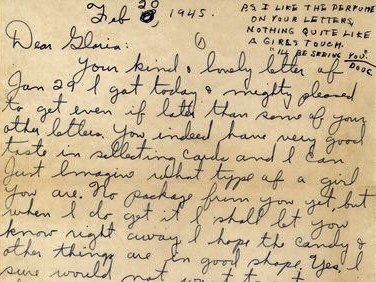 Feb 20, 1945.
P.S. I LIKE THE PERFUME
ON YOUR LETTERS,
NOTHING QUITE LIKE
A GIRLS TOUCH.
"I'LL BE SEEING YOU."
DOUG
Dear Gloria:
①
Your kind & lovely letter of
Jan 29 I got today & mighty pleased
to get even if later than some of your
other letters. You indeed have very good
taste in sellecting cards and I can
just imagine what type of a girl
you are. No package from you yet, but
when I do get it I shall let you
know right away. I hope the candy &
other things are in good shape. Yes, I
sure would not